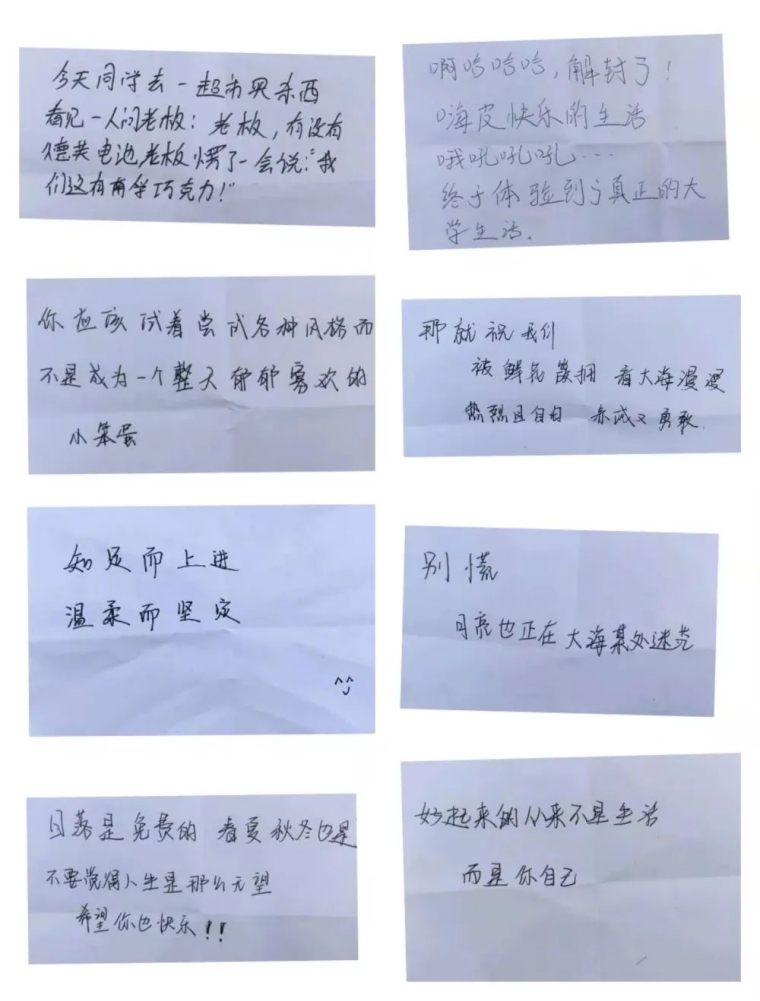 今天同学去一超市买东西
看见一人问老板：老板，有没有
德芙电池,老板愣了一会说:"我
们这有南孚巧克力!"
啊哈哈哈,解封了!
嗨皮快乐的生活
哦吼吼吼···
终于体验到了真正的大
学生活.
你应该试着尝试各种风格而
不是成为一个整天郁郁寡欢的
小笨蛋
那就祝我们
被鲜花簇拥 看大海漫漫
热烈且自由 赤诚又勇敢.
知足而上进
温柔而坚定
^^
别慌
月亮也正在大海某处迷茫
日落是免费的 春夏秋冬也是
不要觉得人生是那么无望
希望你也快乐!!
妙起来的从来不是生活
而是你自己